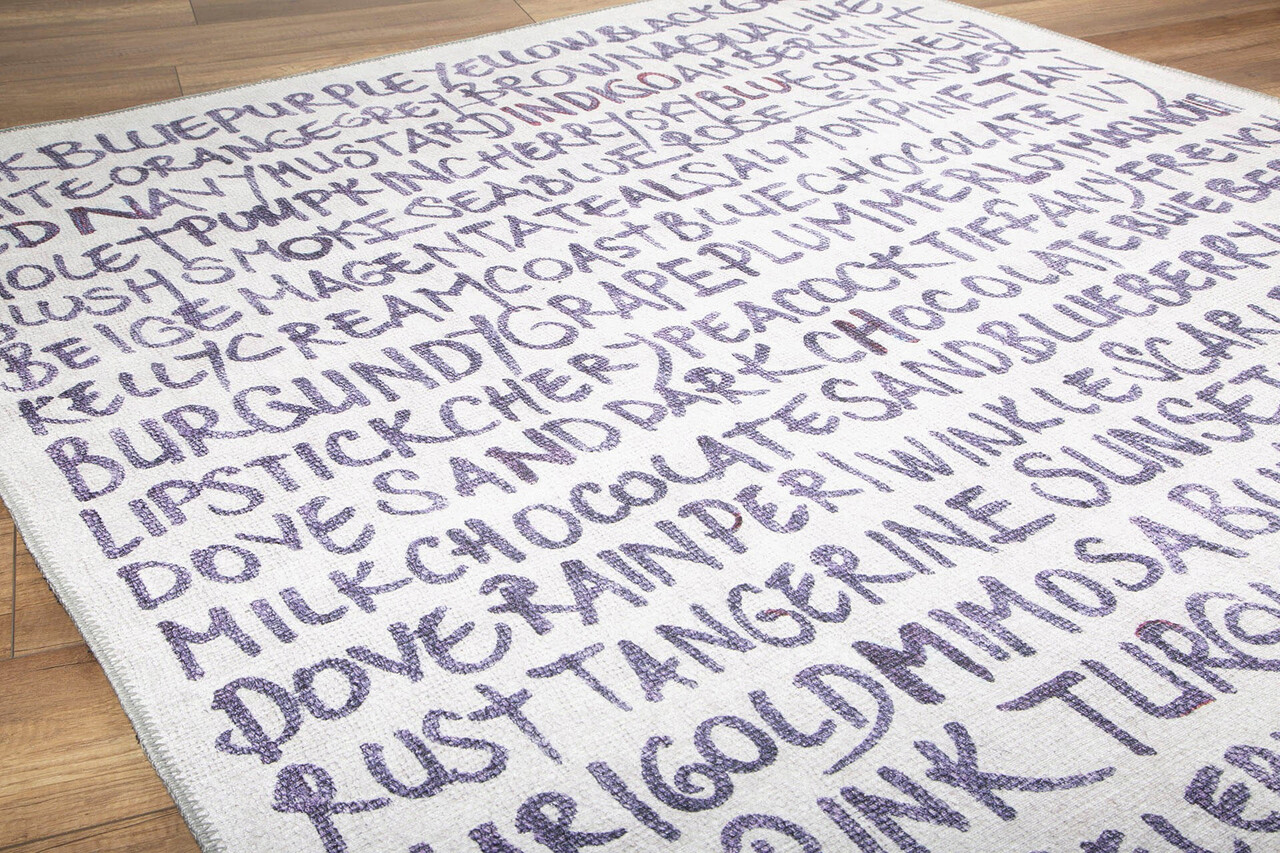 K BLUE PURPLE YELLOW BLACK G
ITE ORANGE GREY BROWN AQUA LIME
ED NAVY MUSTARD INDIGO AMBER MINT
IOLET PUMPKIN CHERRY SKY BLUE STONE IV
BLUSH SMOKE SEA BLUE ROSE LEVANDER
BEIGE MAGENTA TEAL SALMON PINE TAN
KELLY CREAM COAST BLUE CHOCOLATE IVY
BURGUNDY GRAPE PLUM MERLOT MAGN
LIPSTICK CHERRY PEACOCK TIFFANY FRENCH
DOVE SAND DARK CHOCOLATE BLUE BE
MILK CHOCOLATE SAND BLUEBERRY
DOVE RAIN PERIWINKLE SCARL
RUST TANGERINE SUNSET
ARIGOLD MIMOSA BU
PINK TURQU